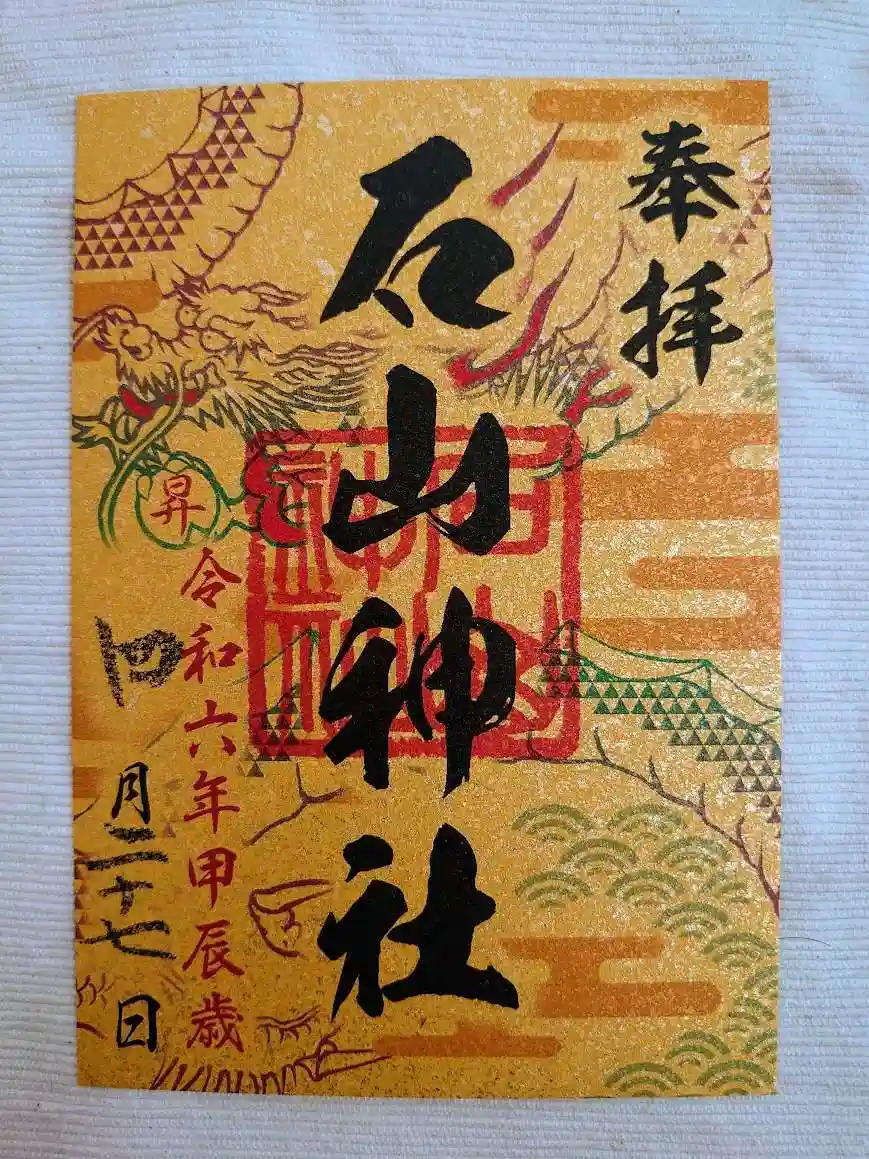 奉拝
石山神社
石山神社
昇
令和六年甲辰歳
四月二十七日